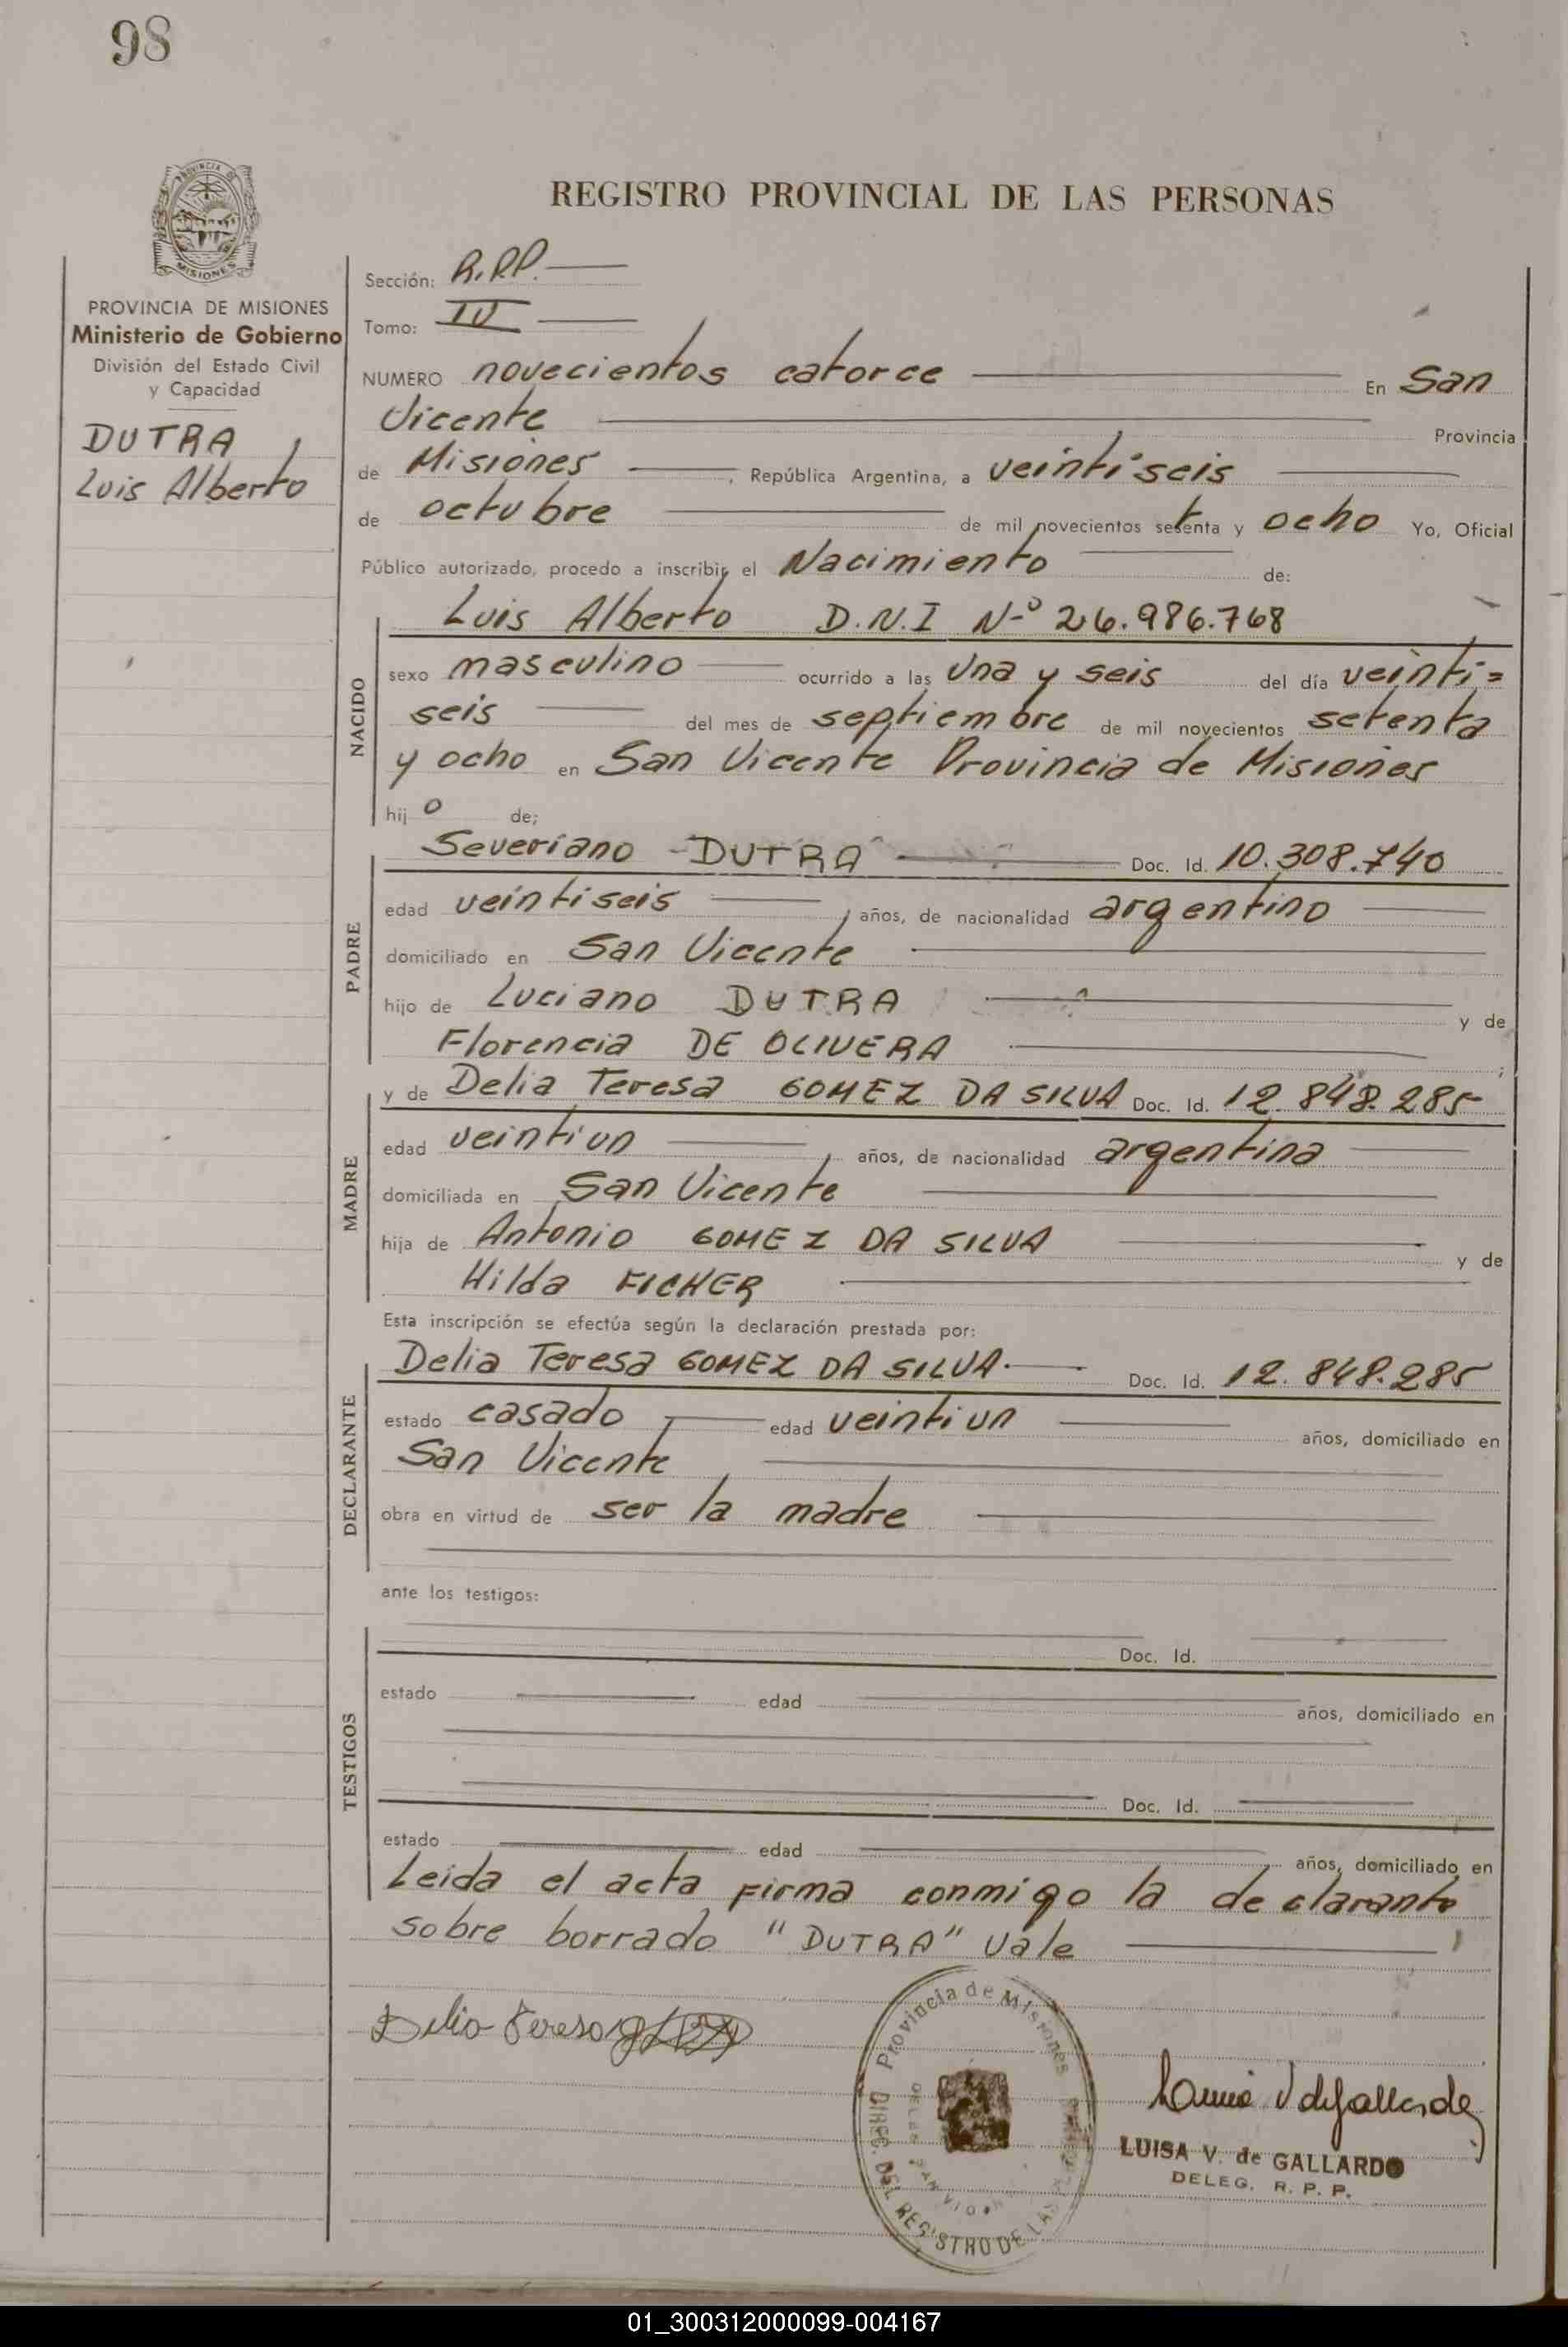 98
REGISTRO PROVINCIAL DE LAS PERSONAS
PROVINCIA DE MISIONES
Ministerio de Gobierno
División del Estado Civil
y Capacidad
DUTRA
Luis Alberto
Sección: R.P.P.
Tomo: IV
NUMERO novecientos catorce En San
Vicente Provincia
de Misiones, República Argentina, a veintiseis
de octubre de mil novecientos setenta y ocho Yo, Oficial
Público autorizado, procedo a inscribir el Nacimiento de:
Luis Alberto D.N.I Nº 26.986.768
NACIDO
sexo masculino ocurrido a las Una y seis del día veinti=
seis del mes de septiembre de mil novecientos setenta
y ocho en San Vicente Provincia de Misiones
hij o de;
PADRE
Severiano DUTRA Doc. Id. 10.308.740
edad veintiseis años, de nacionalidad argentino
domiciliado en San Vicente
hijo de Luciano DUTRA y de
Florencia DE OLIVERA
MADRE
y de Delia Teresa GOMEZ DA SILVA Doc. Id. 12.848.285
edad veintiun años, de nacionalidad argentina
domiciliada en San Vicente
hija de Antonio GOMEZ DA SILVA y de
Hilda FICHER
Esta inscripción se efectúa según la declaración prestada por:
DECLARANTE
Delia Teresa GOMEZ DA SILVA. Doc. Id. 12.848.285
estado casado edad veintiun años, domiciliado en
San Vicente
obra en virtud de ser la madre
ante los testigos:
TESTIGOS
Doc. Id.
estado edad años, domiciliado en
Doc. Id.
estado edad años, domiciliado en
Leida el acta firma conmigo la declarante
sobre borrado "DUTRA" Vale
Delia Teresa
Provincia de Misiones
DIREC. DEL REGISTRO DE LAS
LUISA V. de GALLARDO
DELEG. R. P. P.
01_300312000099-004167